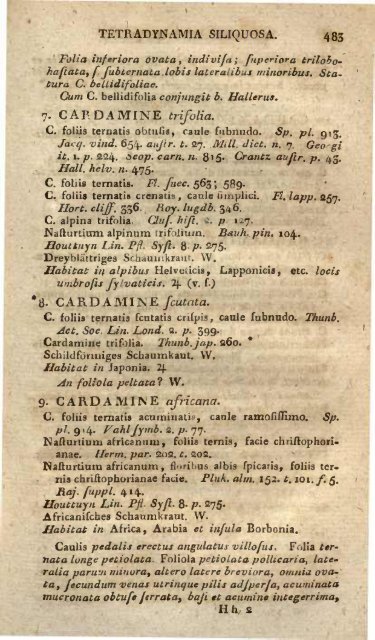 TETRADYNAMIA SILIQUOSA. 483
Folia inferiora ovata, indiviſa; ſuperiora trilobo-
haſtata, ſ. ſubternata lobis lateralibus minoribus. Sta-
tura C. bellidifoliae.
Cum C. bellidifolia conjungit b. Hallerus.
7. CARDAMINE trifolia.
C. foliis ternatis obtuſis, caule ſubnudo. Sp. pl. 913.
Jacq. vind. 654. auſtr. t. 27. Mill. dict. n. 7. Georgi
it. 1. p. 224. Scop. carn. n. 815. Crantz auſtr. p. 43.
Hall. helv. n. 475.
C. foliis ternatis. Fl. ſuec. 563; 589.
C. foliis ternatis crenatis, caule ſimplici. Fl. lapp. 257.
Hort. cliff. 336. Roy. lugdb. 346.
C. alpina trifolia. Cluſ. hiſt. 2. p. 127.
Naſturtium alpinum trifolium. Bauh. pin. 104.
Houttuyn Lin. Pfl. Syſt. 8. p. 275.
Dreyblättriges Schaumkraut. W.
Habitat in alpibus Helveticis, Lapponicis, etc. locis
umbroſis ſylvaticis. ♃ (v. ſ.)
*8. CARDAMINE ſcutata.
C. foliis ternatis ſcutatis criſpis, caule ſubnudo. Thunb.
Act. Soc. Lin. Lond. 2. p. 399.
Cardamine trifolia. Thunb. jap. 260. *
Schildförmiges Schaumkaut. W.
Habitat in Japonia. ♃
An foliola peltata? W.
9. CARDAMINE africana.
C. foliis ternatis acuminatis, caule ramoſiſſimo. Sp.
pl. 914. Vahl ſymb. 2. p. 77.
Naſturtium africanum, foliis ternis, facie chriſtophori-
anae. Herm. par. 202. t. 202.
Naſturtium africanum, floribus albis ſpicatis, foliis ter-
nis chriſtophorianae facie. Pluk. alm. 152. t. 101. f. 5.
Raj. ſuppl. 414.
Houttuyn Lin. Pfl. Syſt. 8. p. 275.
Africaniſches Schaumkraut. W.
Habitat in Africa, Arabia et inſula Borbonia.
Caulis pedalis erectus angulatus villoſus. Folia ter-
nata longe petiolata. Foliola petiolata pollicaria, late-
ralia parum minora, altero latere breviora, omnia ova-
ta, ſecundum venas utrinque pilis adſperſa, acuminata
mucronata obtuſe ſerrata, baſi et acumine integerrima,
H h 2